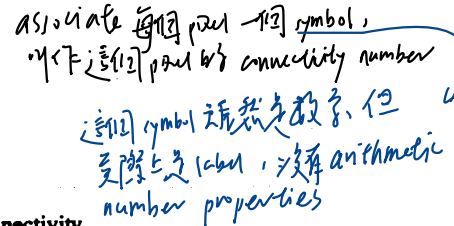 associate 每個 pixel 一個 symbol,
叫作這個 pixel 的 connectivity number
這個 symbol 雖然是數字, 但
實際上是 label, 沒有 arithmetic
number properties
nectivity